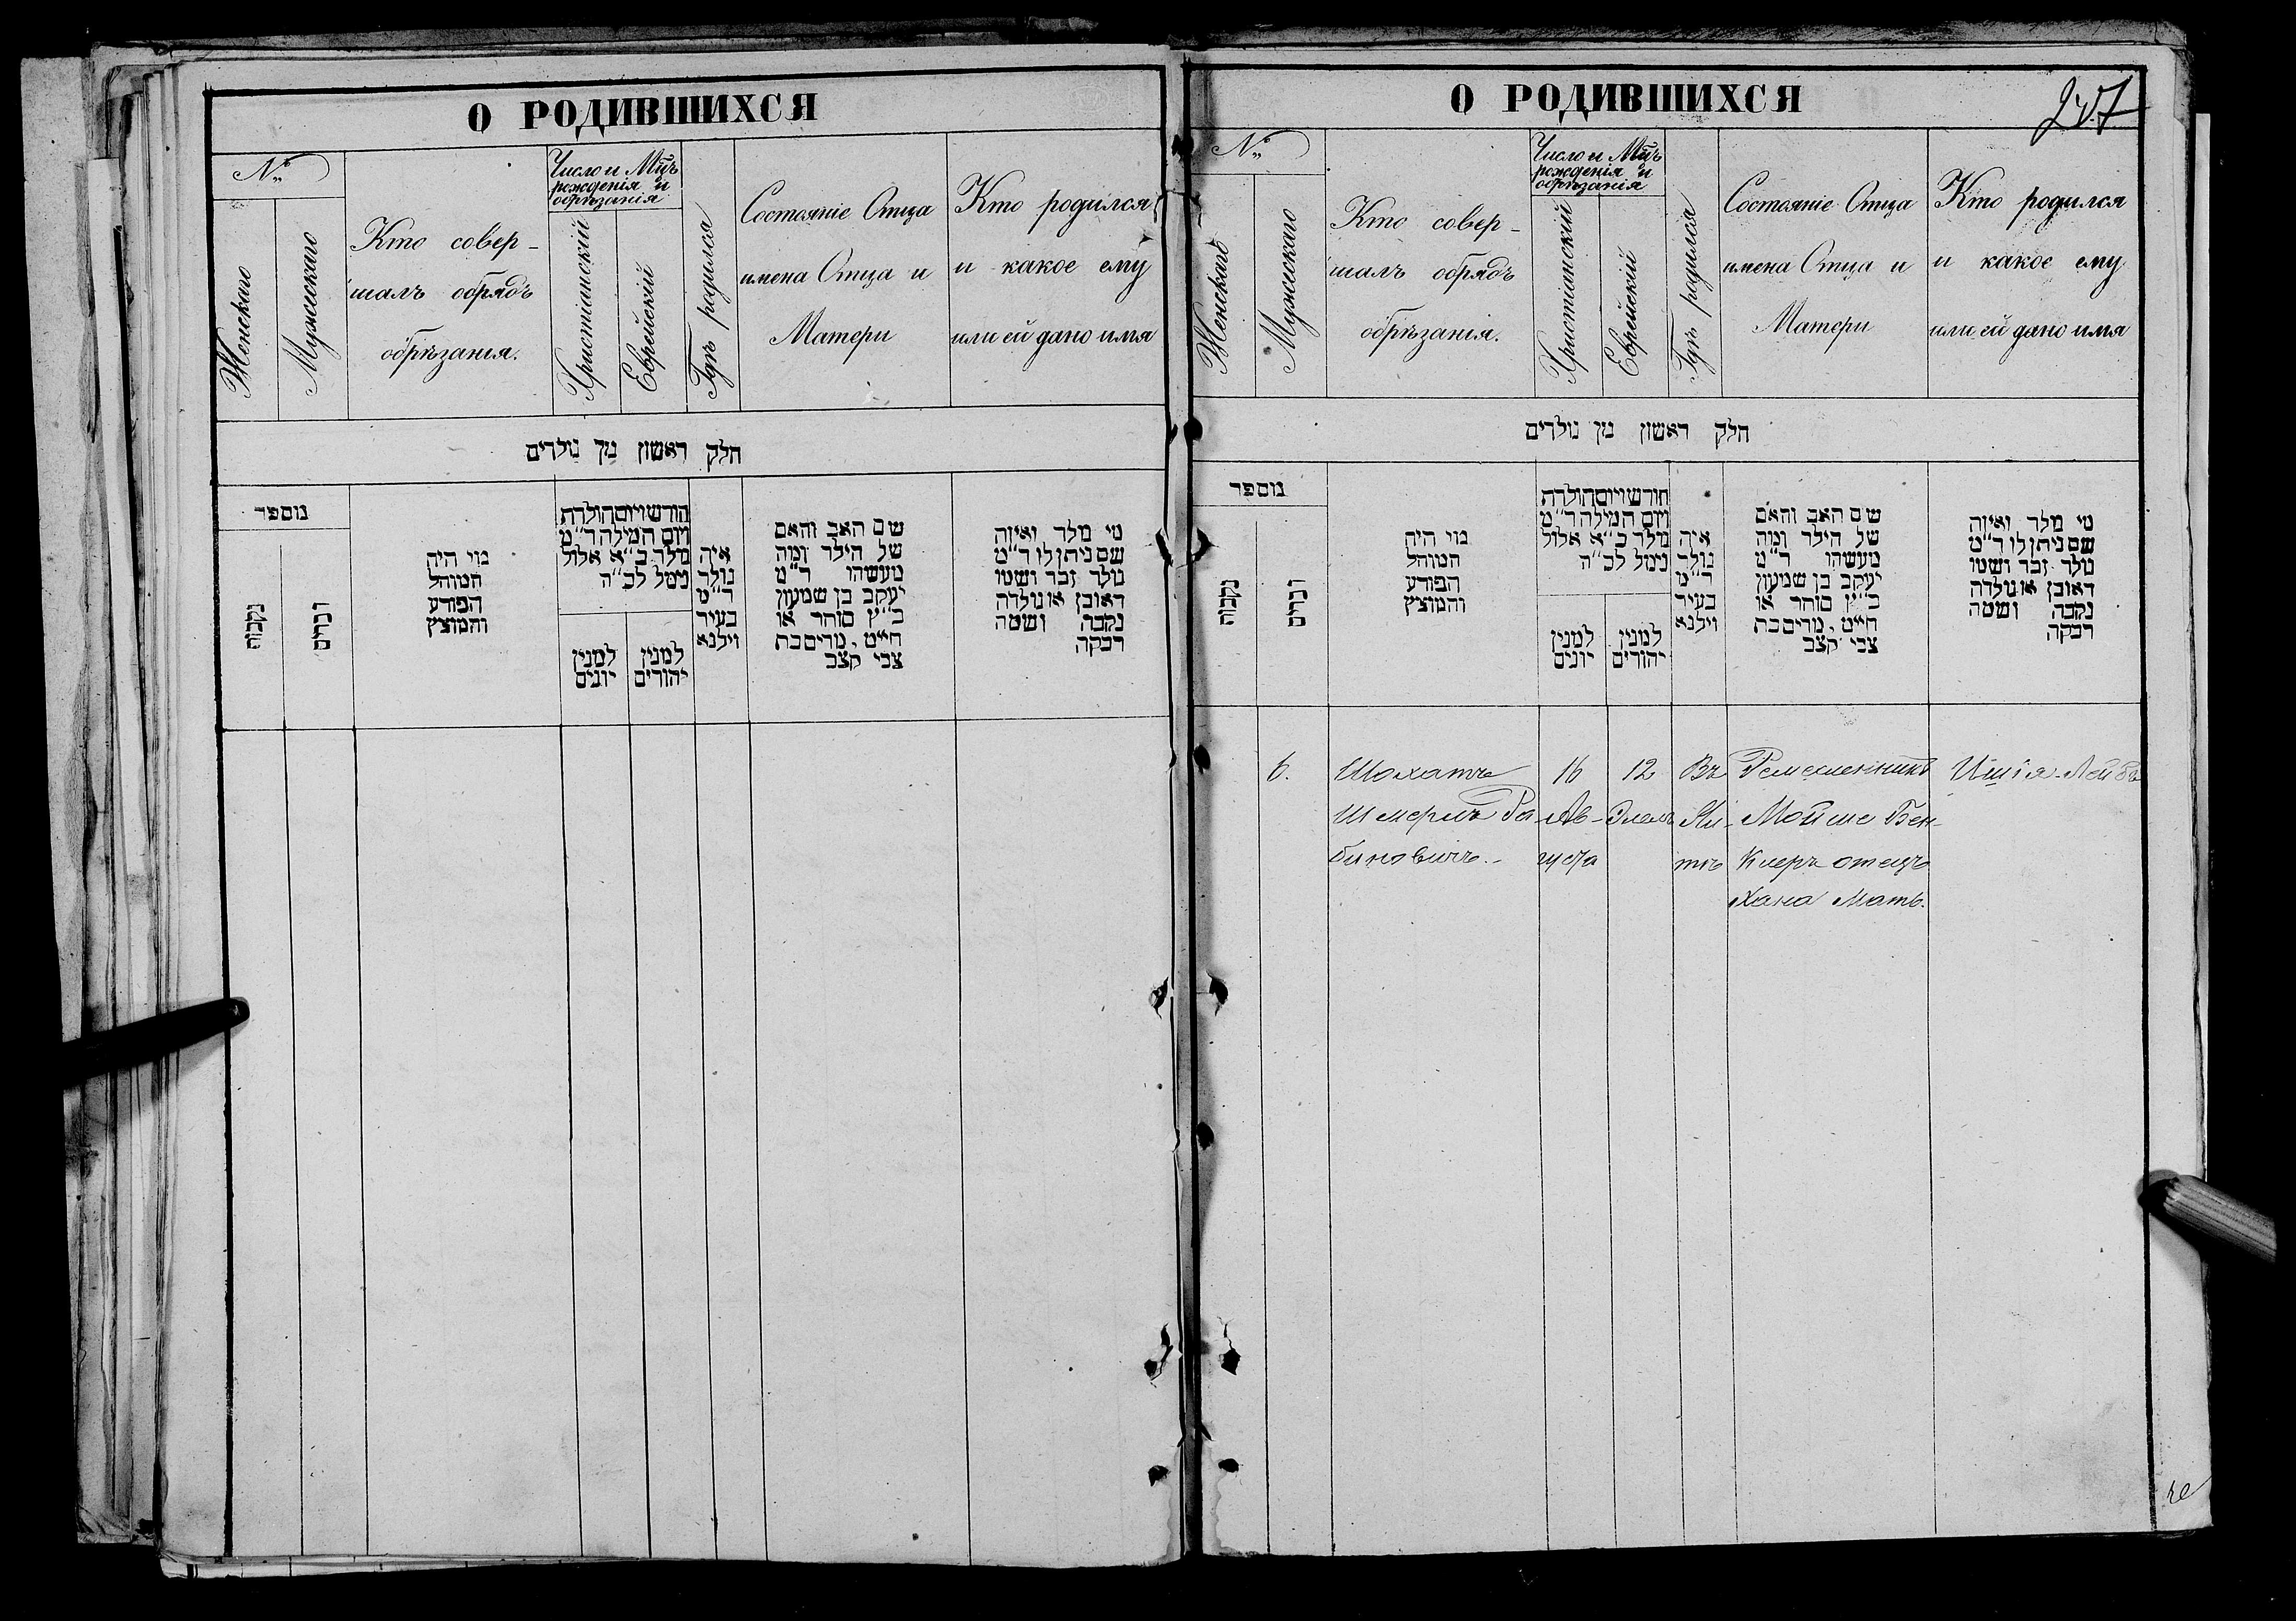 О РОДИВШИХСЯ
№
Женскаго
Мужескаго
Кто совер-
шалъ обрядъ
обрѣзанія.
Число и Мцъ
рожденія и
обрѣзанія
Христіанскій
Еврейскій
Гдѣ родился
Состояніе Отца
имена Отца и
Матери
Кто родился
и какое ему
или ей дано имя
חלק ראשון מן נולדים
מספר
נקבות
זכרים
מי היה
המוהל
הפורע
והמוצץ
חודש ויום הולדת
ויום המילה ד״מ
נולד כ״א אלול
נימל לכ״ה
למנין
יונים
למנין
יהודים
איה
נולד
ד״מ
בעיר
וילנא
שם האב והאם
של הילד ומה
מעשהו ד״מ
יעקב בן שמעון
כ״ץ סוחר או
חייט, מרים בת
צבי קצב
מי נולד ואיזה
שם ניתן לו ד״מ
נולד זכר ושמו
ראובן או נולדה
נקבה ושמה
רבקה
О РОДИВШИХСЯ
№
Женскаго
Мужескаго
Кто совер-
шалъ обрядъ
обрѣзанія.
Число и Мцъ
рожденія и
обрѣзанія
Христіанскій
Еврейскій
Гдѣ родился
Состояніе Отца
имена Отца и
Матери
Кто родился
и какое ему
или ей дано имя
חלק ראשון מן נולדים
מספר
נקבות
זכרים
מי היה
המוהל
הפורע
והמוצץ
חודש ויום הולדת
ויום המילה ד״מ
נולד כ״א אלול
נימל לכ״ה
למנין
יונים
למנין
יהודים
איה
נולד
ד״מ
בעיר
וילנא
שם האב והאם
של הילד ומה
מעשהו ד״מ
יעקב בן שמעון
כ״ץ סוחר או
חייט, מרים בת
צבי קצב
מי נולד ואיזה
שם ניתן לו ד״מ
נולד זכר ושמו
ראובן או נולדה
נקבה ושמה
רבקה
6.
Шохатъ
Шмерлъ Ра-
биновичъ.
16
Ав-
густа
12
Элелъ
Въ
Ял-
тѣ
Ремесленникъ
Мойше Бен-
клеръ отецъ
Хана Мать.
Ишія-Лейбъ